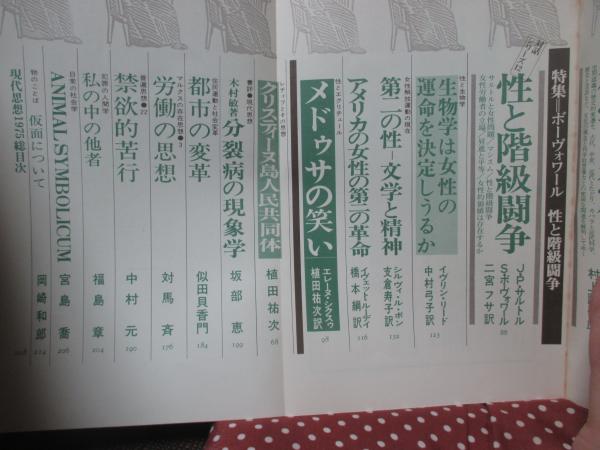 特集=ボーヴォワール 性と階級闘争
性と階級闘争
J・P・サルトル
S・ボーヴォワール
二宮フサ訳
88
性と生物学
生物学は女性の
運命を決定しうるか
イヴリン・リード
中村弓子訳
123
女性解放運動の現在
第二の性－文学と精神
シルヴィ・ル・ボン
支倉寿子訳
132
アメリカの女性の第二の革命
イヴェット・ルーディ
橋本綱訳
116
性とエクリチュール
メドゥサの笑い
エレーヌ・シクスゥ
植田祐次訳
98
レチフとその思想
クリスティーヌ島人民共同体
植田祐次
68
書評●現代思想
木村敏著 分裂病の現象学
坂部恵
199
住民運動と社会変革
都市の変革
似田貝香門
184
マルクスの自在思想●3
労働の思想
対馬斉
176
普遍思想●22
禁欲的苦行
中村元
190
犯罪の人間学
私の中の他者
福島章
204
日常の社会学
ANIMAL SYMBOLICUM
宮島喬
206
物のことば
仮面について
岡崎和郎
214
現代思想1975総目次